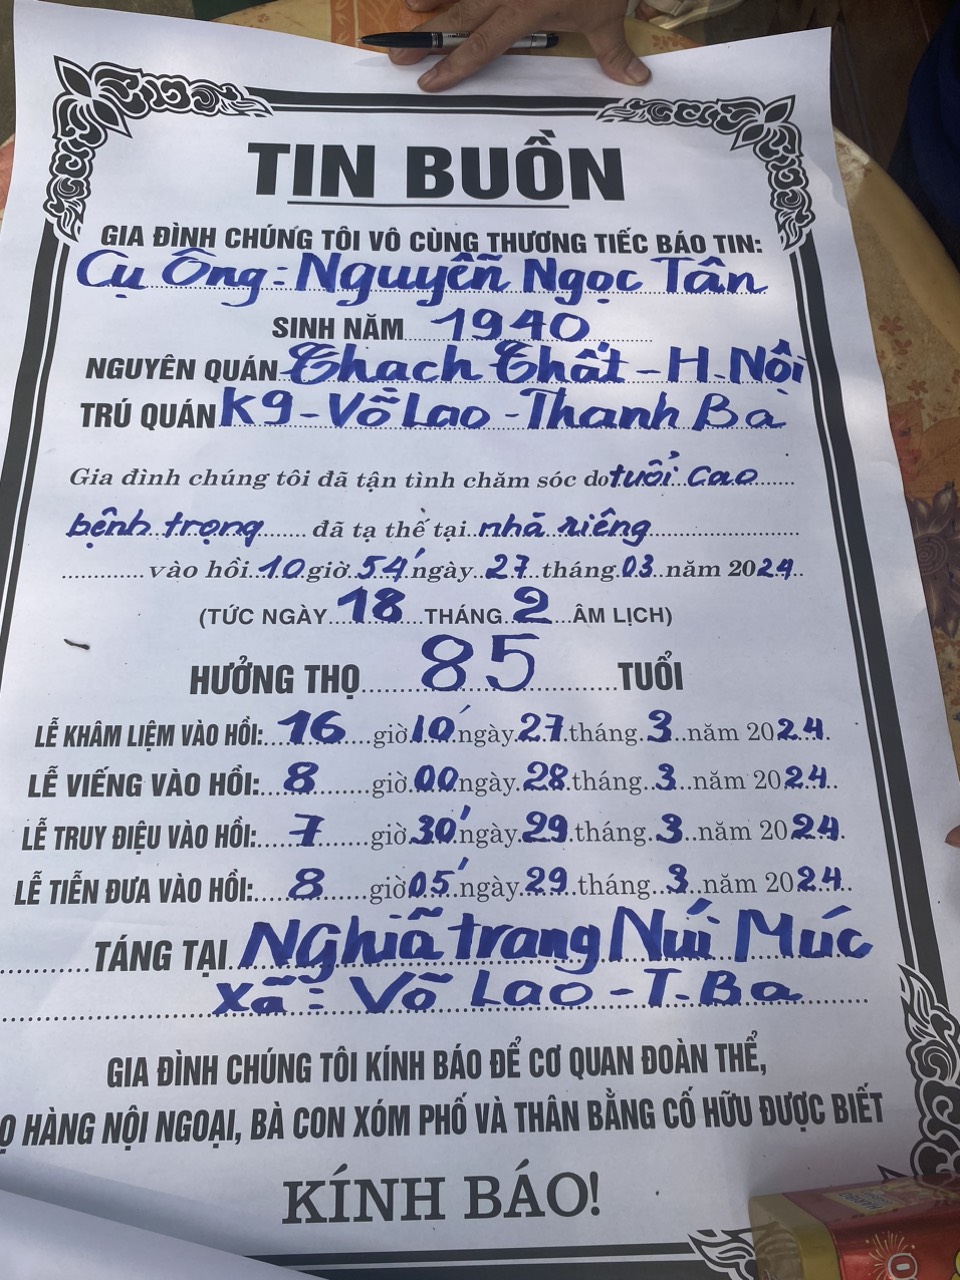 TIN BUỒN
GIA ĐÌNH CHÚNG TÔI VÔ CÙNG THƯƠNG TIẾC BÁO TIN:
Cụ Ông: Nguyễn Ngọc Tân
SINH NĂM 1940
NGUYÊN QUÁN Thạch Thất - H. Nội
TRÚ QUÁN K9 - Võ Lao - Thanh Ba
Gia đình chúng tôi đã tận tình chăm sóc do tuổi cao
bệnh trọng đã tạ thế tại nhà riêng
vào hồi 10 giờ 54' ngày 27 tháng 03 năm 2024
(TỨC NGÀY 18 THÁNG 2 ÂM LỊCH)
HƯỞNG THỌ 85 TUỔI
LỄ KHÂM LIỆM VÀO HỒI: 16 giờ 10' ngày 27 tháng 3 năm 2024.
LỄ VIẾNG VÀO HỒI: 8 giờ 00 ngày 28 tháng 3 năm 2024
LỄ TRUY ĐIỆU VÀO HỒI: 7 giờ 30' ngày 29 tháng 3 năm 2024.
LỄ TIỄN ĐƯA VÀO HỒI: 8 giờ 05' ngày 29 tháng 3 năm 2024
TÁNG TẠI Nghĩa trang Núi Múc
Xã: Võ Lao - T. Ba
GIA ĐÌNH CHÚNG TÔI KÍNH BÁO ĐỂ CƠ QUAN ĐOÀN THỂ,
Ọ HÀNG NỘI NGOẠI, BÀ CON XÓM PHỐ VÀ THÂN BẰNG CỐ HỮU ĐƯỢC BIẾT
KÍNH BÁO!